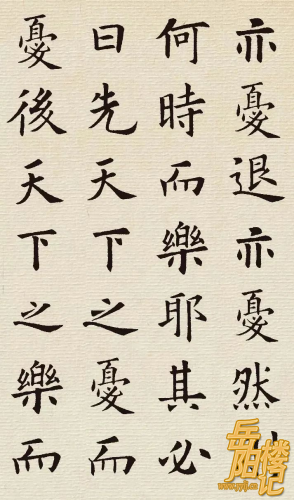 亦憂退亦憂然
何時而樂耶其必
曰先天下之憂而
憂後天下之樂而
岳阳楼记